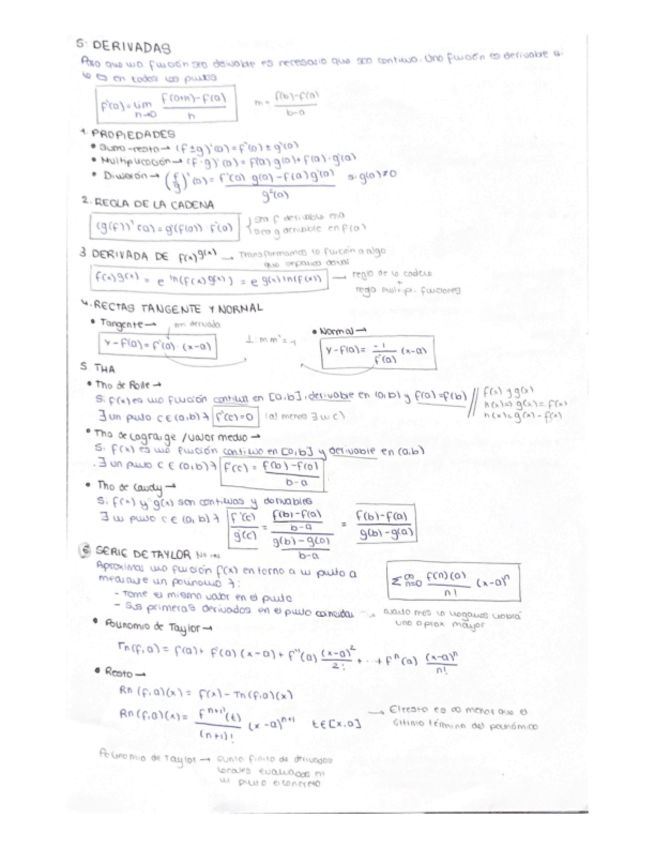 5. DERIVADAS
Para que una función sea derivable es necesario que sea continua. Una función es derivable si
lo es en todos los puntos
f'(a) = lim h→0 f(a+h)-f(a) / h
m = f(b)-f(a) / b-a
1. PROPIEDADES
• Suma-resta → (f ± g)'(a) = f'(a) ± g'(a)
• Multiplicación → (f · g)'(a) = f'(a) g(a) + f(a) · g'(a)
• División → (f/g)'(a) = f'(a) g(a) - f(a) g'(a) / g²(a) si g(a) ≠ 0
2. REGLA DE LA CADENA
(g(f))'(a) = g'(f(a)) · f'(a)
Sea f derivable en a
Sea g derivable en f(a)
3 DERIVADA DE f(x)^g(x) → Transformamos la función a algo
que sepamos
f(x)^g(x) = e^ln(f(x)^g(x)) = e^g(x) ln(f(x))
→ regla de la cadena
+
regla multipl. funciones
4. RECTAS TANGENTE Y NORMAL
• Tangente →
m derivada
y - f(a) = f'(a) · (x-a)
⊥: m·m' = -1
• Normal →
y - f(a) = -1/f'(a) (x-a)
5 THA
• Tho de Rolle →
Si f(x) es una función continua en [a,b], derivable en (a,b) y f(a) = f(b)
∃ un punto c ∈ (a,b) / f'(c) = 0 (al menos ∃ un c)
f(x) y g(x)
h(x) = g(x) - f(x)
• Tho de Lagrange / valor medio →
Si f(x) es una función continua en [a,b] y derivable en (a,b)
∃ un punto c ∈ (a,b) / f'(c) = f(b)-f(a) / b-a
• Tho de Cauchy →
Si f(x) y g(x) son continuas y derivables
∃ un punto c ∈ (a,b) / f'(c)/g'(c) = (f(b)-f(a) / b-a) / (g(b)-g(a) / b-a) = f(b)-f(a) / g(b)-g(a)
6 SERIE DE TAYLOR
Aproximar una función f(x) en torno a un punto a
mediante un polinomio /:
- Tome el mismo valor en el punto
- Sus primeras derivadas en el punto coincidan → cuanto más lo hagamos habrá
una aprox mayor
Σ∞n=0 f(n)(a) / n! (x-a)^n
• Polinomio de Taylor →
Tn(f,a) = f(a) + f'(a) (x-a) + f''(a) (x-a)²/2! + ... + f^n(a) (x-a)^n/n!
• Resto →
Rn(f,a)(x) = f(x) - Tn(f,a)(x)
Rn(f,a)(x) = f^n+1(t) / (n+1)! (x-a)^n+1 t ∈ [x,a]
→ El resto es menos que el
último término del polinomio
Polinomio de Taylor → suma finita de derivadas
locales evaluadas en
un punto concreto